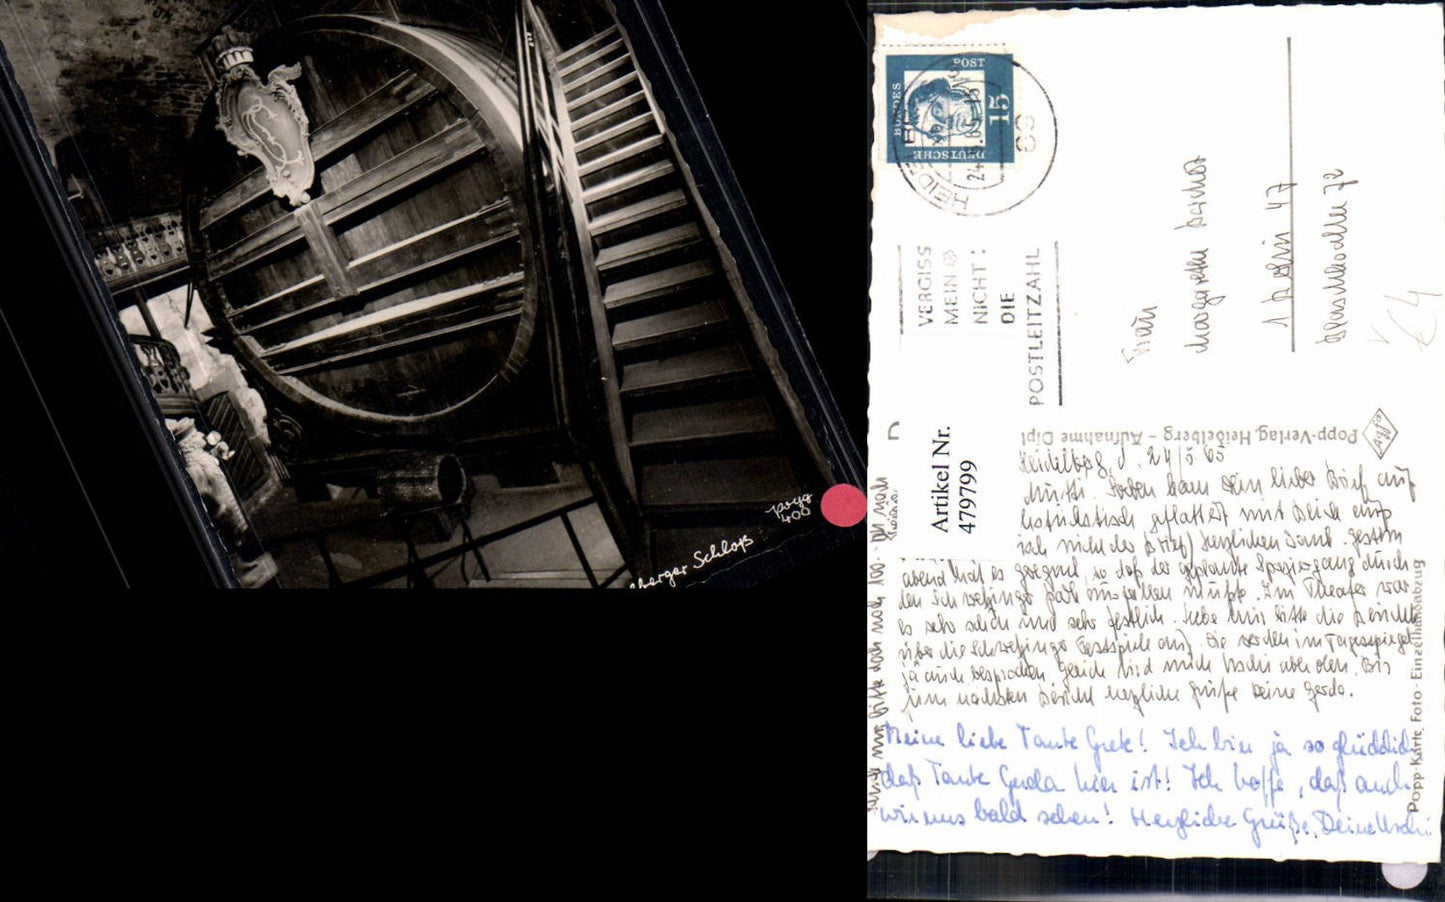 popp
400
lberger Schloß
DEUTSCHE
BUNDES
POST
15
HEIDE
VERGISS
MEIN
NICHT:
DIE
POSTLEITZAHL
Frau
1 Berlin 47
Popp-Verlag, Heidelberg - Aufnahme Dipl
Artikel Nr.
479799
Heidelbg, d. 24/5 65
Mutti. Soeben kam Dein lieber Brief auf
geflattert
nicht der Brief) herzlichen Dank. Gestern
abend hat es geregnet, so daß der geplante Spaziergang durch
den Schwetzinger Park ausfallen mußte. Im Theater war
es sehr schön und sehr festlich. Hebe mir bitte die Berichte
über die Schwetzinger Festspiele auf. Sie werden im Tagesspiegel
ja auch besprochen. Gleich wird mich Uschi abholen. Bis
zum nächsten Bericht herzliche Grüße Deine Gerda.
Meine liebe Tante Grete! Ich bin ja so glücklich
daß Tante Gerda hier ist! Ich hoffe, daß auch
wir uns bald sehen! Herzliche Grüße, Deine Uschi
Popp-Karte, Foto-Einzelhandabzug
mir bitte doch noch 100.-